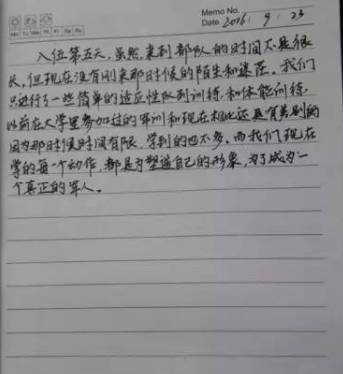 Memo No.
Mo Tu We Th Fr Sa Su
Date 2016 / 9 / 23
入伍第五天，虽然来到部队的时间不是很
长，但现在没有刚来那时候的陌生和迷茫。我们
只进行了一些简单的适应性队列训练，和体能训练，
以前在大学里参加过的军训和现在相比还是有差别的
因为那时候时间有限，学到的也不多。而我们现在
学的每一个动作，都是为塑造自己的形象，为了成为一
个真正的军人。